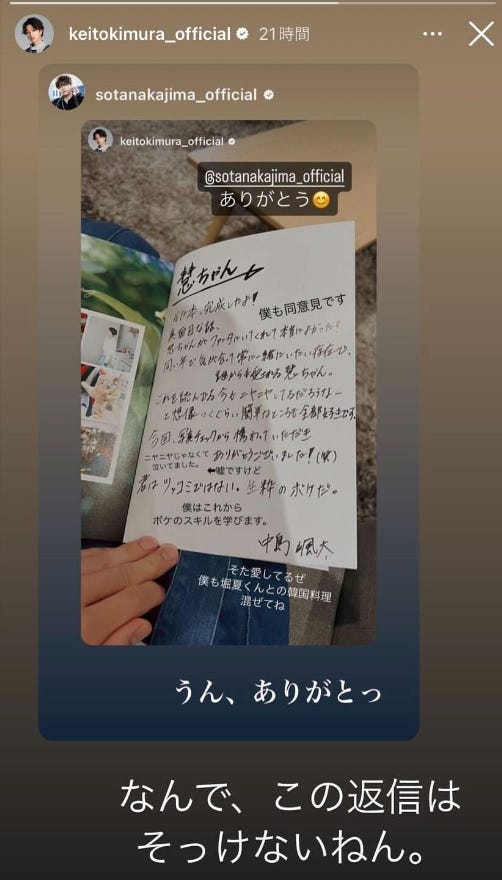 keitokimura_official 21時間
sotanakajima_official
keitokimura_official
@sotanakajima_official
ありがとう😊
慧ちゃんへ
完成したよ!
僕も同意見です
真面目な話、
慧ちゃんがファンタにいてくれて本当によかった!
同い年で気が合って常に一緒にいたい存在で、
慧ちゃん。
これを読んでる今もニヤニヤしてるだろうなー
と想像つくぐらい簡単なところも全部好きです。
今回、写真チェックから携わっていただき
ニヤニヤじゃなくて
泣いてました。
ありがとうございました!(笑)
⬅嘘ですけど
君はツッコミではない。生粋のボケだ。
僕はこれから
ボケのスキルを学びます。
中島颯太
そた愛してるぜ
僕も堀夏くんとの韓国料理
混ぜてね
うん、ありがとっ
なんで、この返信は
そっけないねん。